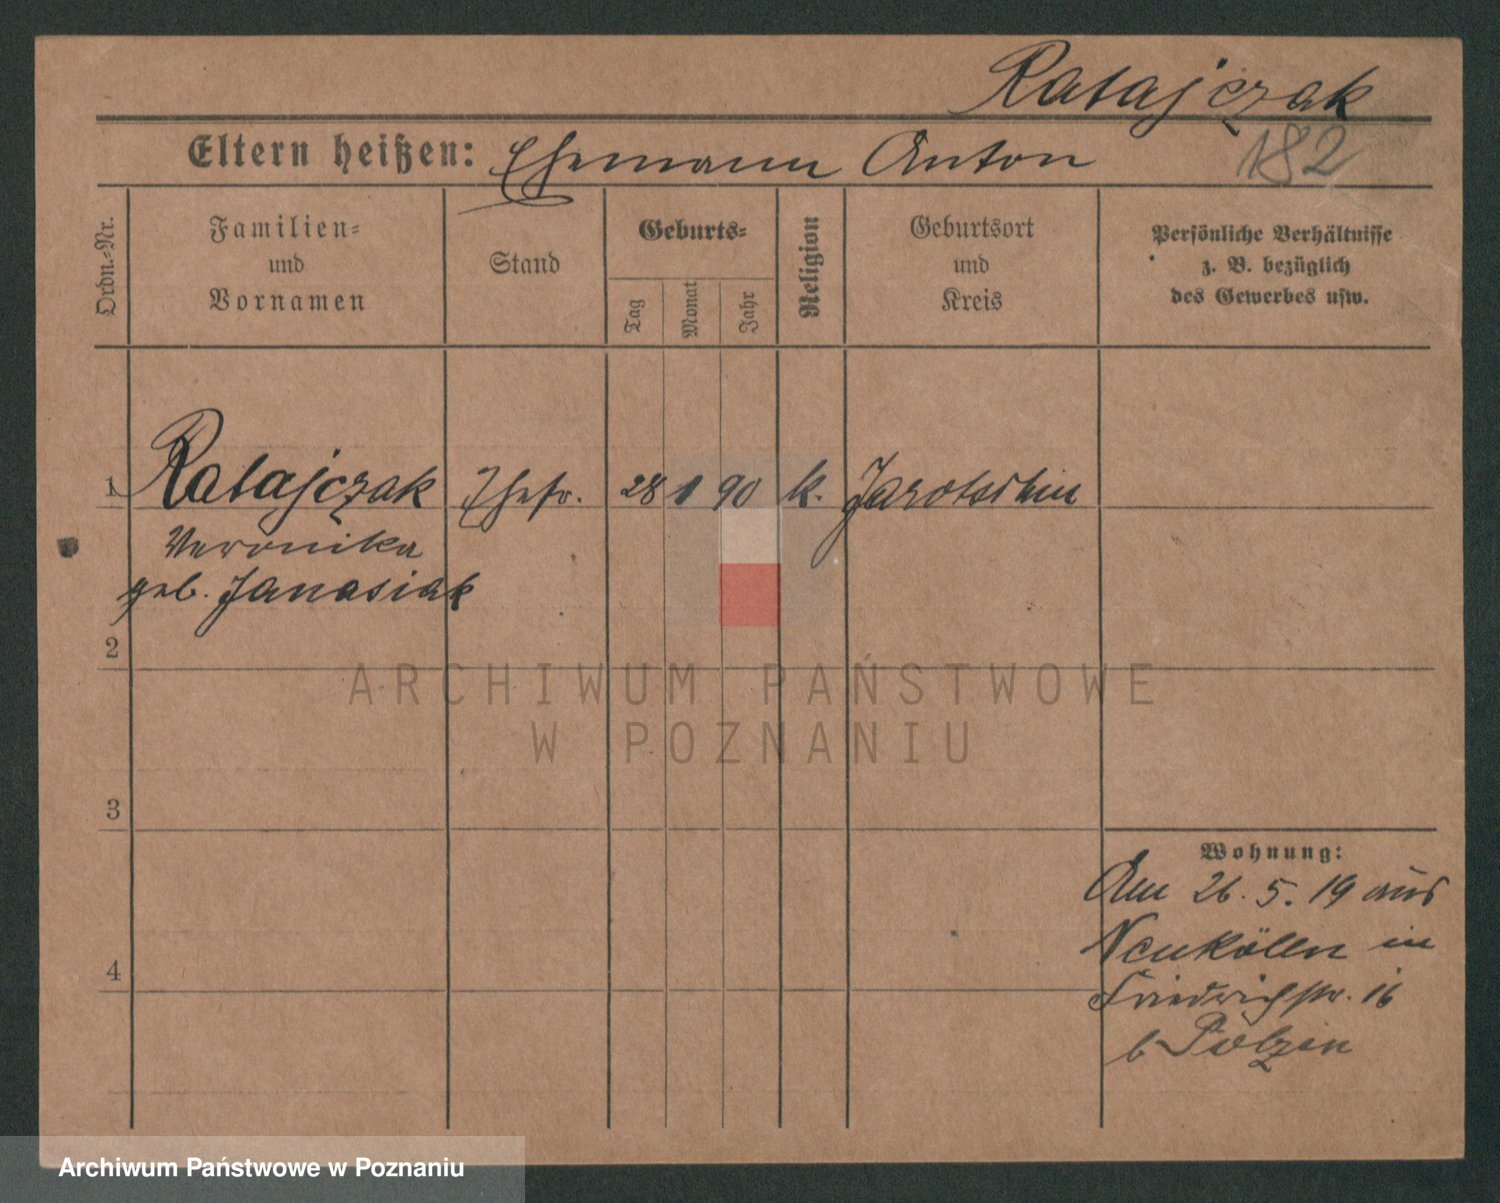 Ratajczak
182
Eltern heißen: Ehemann Anton
Ordn.-Nr.
Familien-
und
Vornamen
Stand
Geburts-
Tag
Monat
Jahr
Religion
Geburtsort
und
Kreis
Persönliche Verhältnisse
z. B. bezüglich
des Gewerbes usw.
1 Ratajczak Ehefr. 28 1 90 k. Jarotschin
Veronika
geb. Janasiak
2
3
4
Wohnung:
Am 26. 5. 19 aus
Neukölln in
Friedrichstr. 16
b Polzin
ARCHIWUM PAŃSTWOWE
W POZNANIU
Archiwum Państwowe w Poznaniu